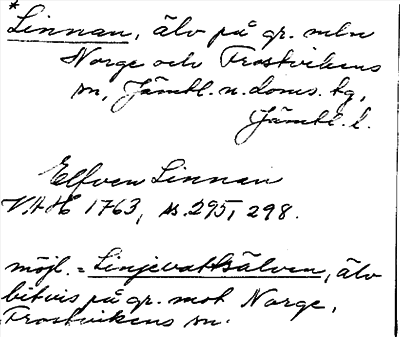 *
Linnan, älv på gr. mln
Norge och Frostvikens
sn, Jämtl. n. doms. tg,
Jämtl. l.
Elfven Linnan
VAH 1763, s. 295, 298.
möjl. = Linjevattsälven, älv
bitvis på gr. mot Norge,
Frostvikens sn.